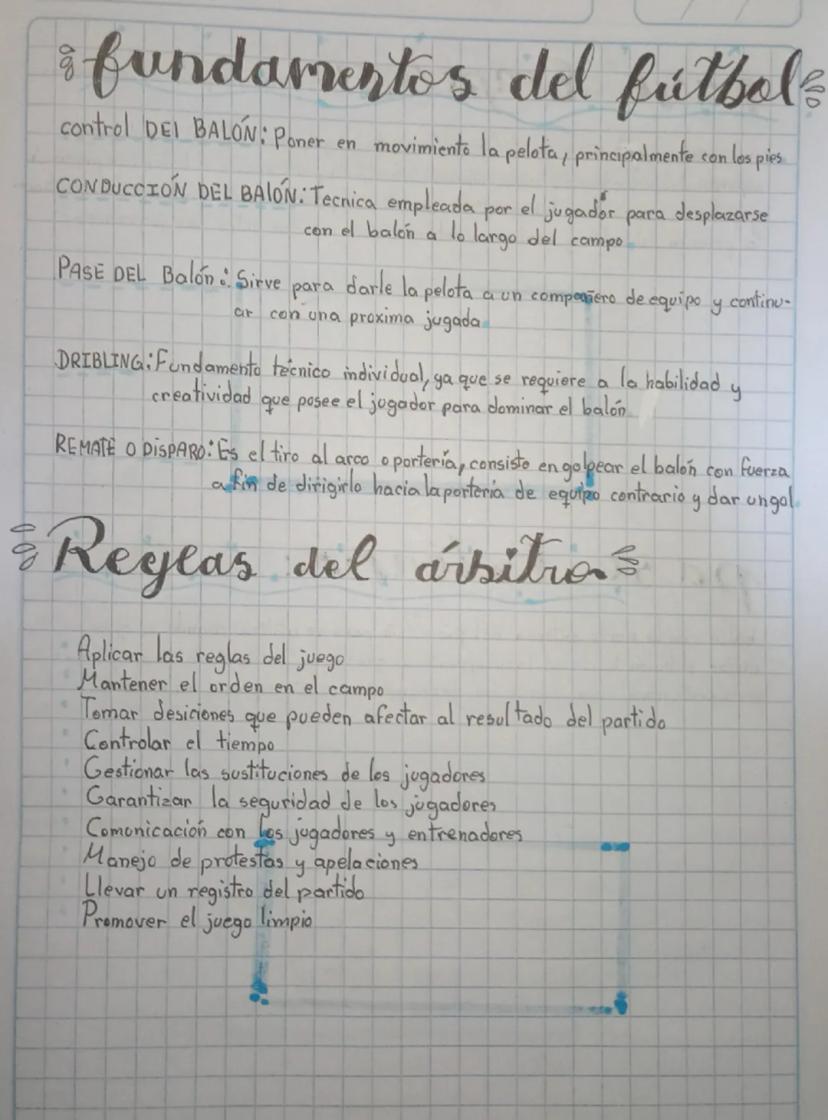 fundamentos del fútbol
control DEl BALÓN: Poner en movimiento la pelota, principalmente con los pies
CONDUCCIÓN DEL BAlÓN: Tecnica empleada por el jugador para desplazarse
con el balón a lo largo del campo
PASE DEL Balón: Sirve para darle la pelota a un compañero de equipo y continu-
ar con una proxima jugada
DRIBLING: Fundamento técnico individual, ya que se requiere a la habilidad y
creatividad que posee el jugador para dominar el balón
REMATE O DISPARO: Es el tiro al arco o portería, consiste en golpear el balón con fuerza
a fin de dirigirlo hacia la portería de equipo contrario y dar un gol
Reglas del árbitro
Aplicar las reglas del juego
Mantener el orden en el campo
Tomar desiciones que pueden afectar al resultado del partido
Controlar el tiempo
Gestionar las sustituciones de los jugadores
Garantizar la seguridad de los jugadores
Comunicación con los jugadores y entrenadores
Manejo de protestas y apelaciones
Llevar un registro del partido
Promover el juego limpio